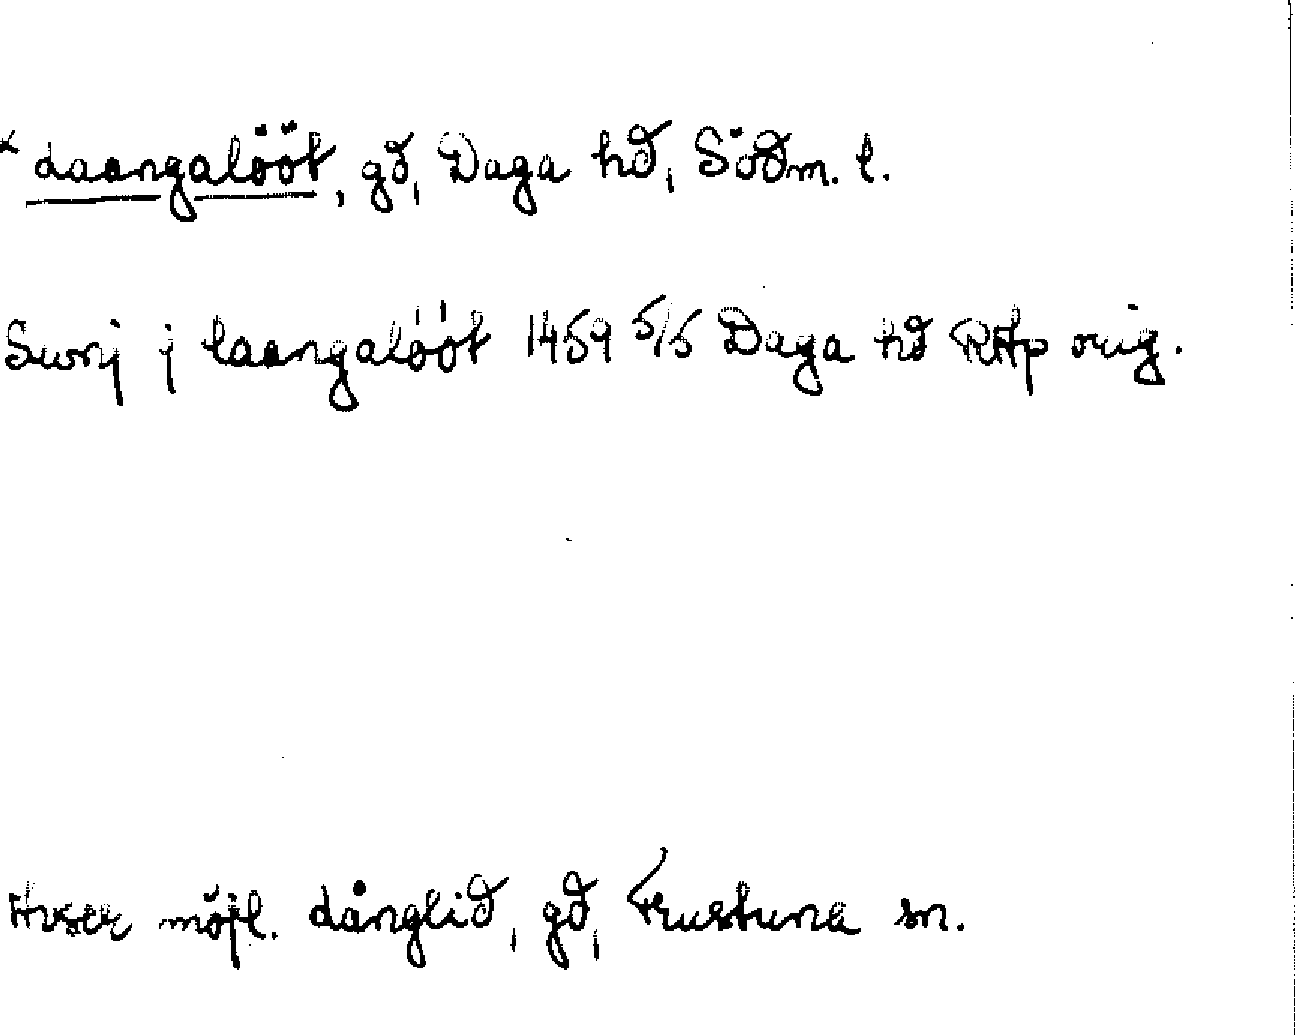 × Laangalööt, gd, Daga hd, Södm. l.
Swnj j laangalóót 1459 5/5 Daga hd RAp orig.
Avser möjl. Långlid, gd, Frustuna sn.